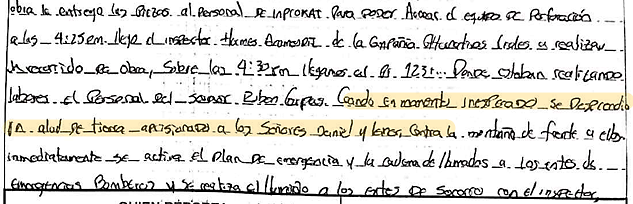 obra la entrega los Pizos al Personal de INPROMAT Para poder Avanzar el equipo de Perforación
a las 4:25pm. llega el inspector de la Compañia Alternativas Viales a realizar
Un recorrido de obra, Sobre las 4:32pm llegamos al Pi 123+.. Donde estaban realizando
labores el Personal del señor Ruben Corpas. Cuando en momento inesperado se desprendio
un alud de tierra aprisionando a los Señores Daniel y Contra la montaña de frente a ellos
inmediatamente se activa el Plan de emergencia y la cadena de llamados a los entes de
emergencias Bomberos y se realiza el llamado a los entes de Socorro con el inspector,